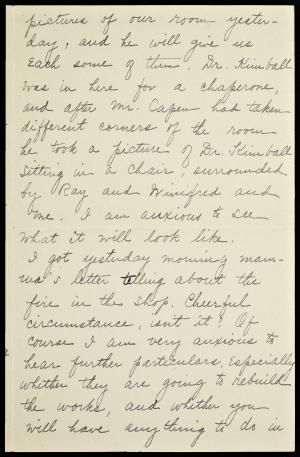 pictures of our room yester-
day; and he will give us
each some of them. Dr. Kimball
was in here for a chaperone,
and after Mr. Capen had taken
different corners of the room
he took a picture of Dr. Kimball
sitting in a chair, surrounded
by Ray and Winifred and
me. I am anxious to see
what it will look like.
I got yesterday morning mam-
ma's letter telling about the
fire in the shop. Cheerful
circumstance, isn't it? Of
course I am very anxious to
hear further particulars, especially
whether they are going to rebuild
the works, and whether you
will have anything to do in